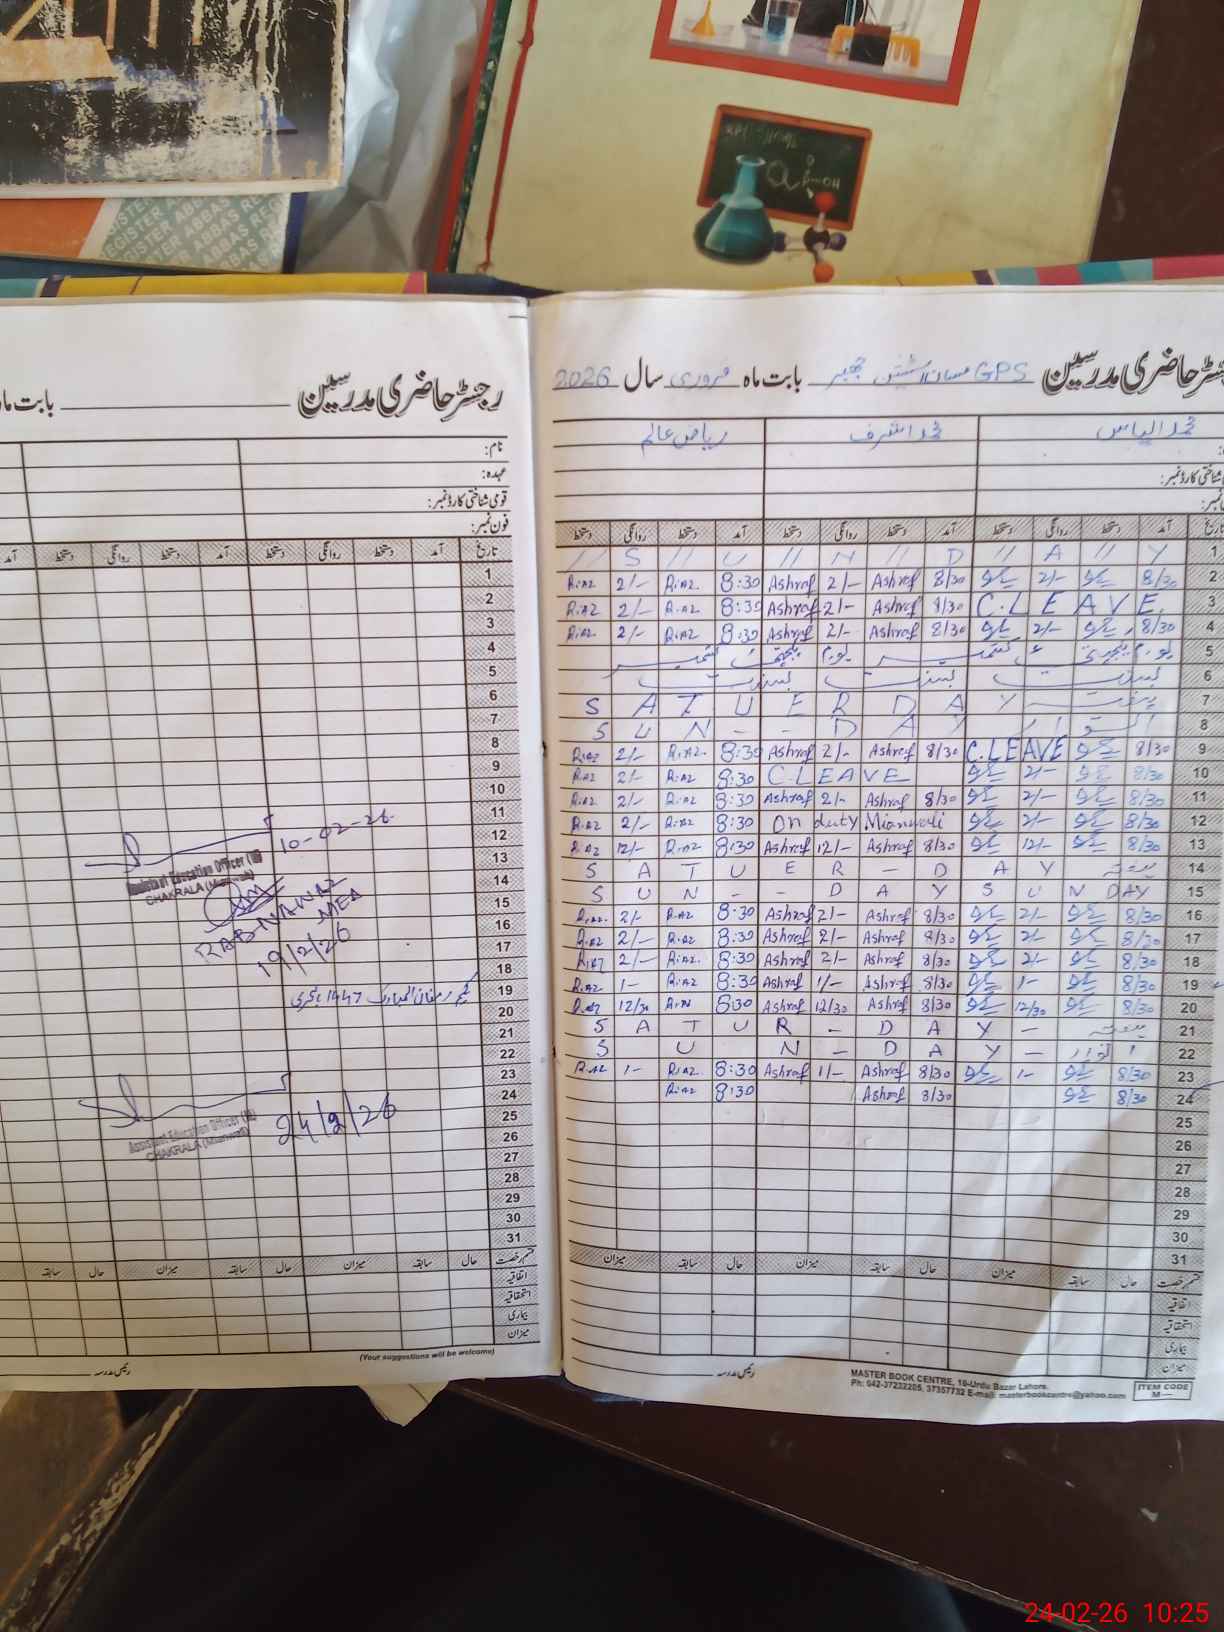 REGISTER ABBAS REGISTER
رجسٹر حاضری مدرسین
بابت ماہ
نام:
عہدہ:
قومی شناختی کارڈ نمبر:
فون نمبر:
تاریخ آمد دستخط روانگی دستخط آمد دستخط روانگی دستخط آمد
1
2
3
4
5
6
7
8
9
10
11
12
13
14
15
16
17
18
19
20
21
22
23
24
25
26
27
28
29
30
31
10-02-26
Assistant Education Officer (M)
CHAKRALA (Mianwali)
RAB NAWAZ
MEA
19/2/26
یکم رمضان المبارک 1447 ہجری
Assistant Education Officer (M)
CHAKRALA (Mianwali)
24/2/26
قسم رخصت حال سابقہ میزان حال سابقہ میزان حال سابقہ
اتفاقیہ
استحقاقیہ
بیماری
میزان
(Your suggestions will be welcome)
رئیس مدرسہ
رجسٹر حاضری مدرسین GPS بابت ماہ فروری سال 2026
محمد الیاس محمد اشرف ریاض عالم
شناختی کارڈ نمبر:
آمد دستخط روانگی دستخط آمد دستخط روانگی دستخط آمد دستخط روانگی دستخط
// S // U // N // D // A // Y 1
Riaz 2/- Riaz 8:30 Ashraf 2/- Ashraf 8/30 2/- 8/30 2
Riaz 2/- Riaz 8:30 Ashraf 2/- Ashraf 8/30 C.LEAVE. 3
Riaz 2/- Riaz 8:30 Ashraf 2/- Ashraf 8/30 2/- 8/30 4
یوم یکجہتی کشمیر یوم یکجہتی کشمیر 5
بسنت بسنت بسنت 6
S A T U E R D A Y 7
S U N - - D A Y اتوار 8
Riaz 2/- Riaz 8:30 Ashraf 2/- Ashraf 8/30 C.LEAVE 8/30 9
Riaz 2/- Riaz 8:30 C.LEAVE 2/- 8/30 10
Riaz 2/- Riaz 8:30 Ashraf 2/- Ashraf 8/30 2/- 8/30 11
Riaz 2/- Riaz 8:30 On duty Mianwali 2/- 8/30 12
Riaz 12/- Riaz 8:30 Ashraf 12/- Ashraf 8/30 12/- 8/30 13
S A T U E R - D A Y ہفتہ 14
S U N - - D A Y S U N DAY 15
Riaz 2/- Riaz 8:30 Ashraf 2/- Ashraf 8/30 2/- 8/30 16
Riaz 2/- Riaz 8:30 Ashraf 2/- Ashraf 8/30 2/- 8/30 17
Riaz 2/- Riaz 8:30 Ashraf 2/- Ashraf 8/30 2/- 8/30 18
Riaz 1- Riaz 8:30 Ashraf 1/- Ashraf 8/30 1- 8/30 19
Riaz 12/30 Riaz 8:30 Ashraf 12/30 Ashraf 8/30 12/30 8/30 20
S A T U R - D A Y - ہفتہ 21
S U N - D A Y - اتوار 22
Riaz 1- Riaz 8:30 Ashraf 1/- Ashraf 8/30 1- 8/30 23
Riaz 8:30 Ashraf 8/30 8/30 24
25
26
27
28
29
30
31
قسم رخصت حال سابقہ میزان حال سابقہ میزان حال سابقہ میزان
اتفاقیہ
استحقاقیہ
بیماری
میزان
رئیس مدرسہ
MASTER BOOK CENTRE, 19-Urdu Bazar Lahore.
Ph: 042-37232205, 37357732 E-mail: masterbookcentre@yahoo.com
ITEM CODE
M—
24-02-26 10:25